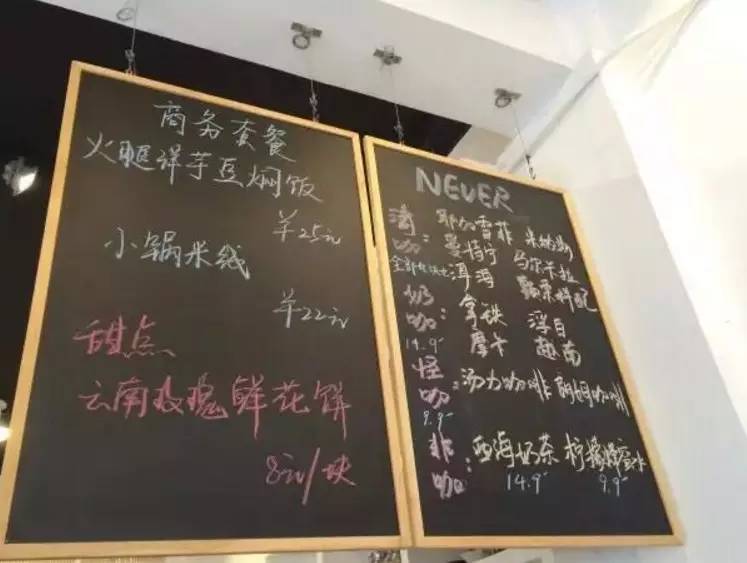 商务套餐
火腿洋芋豆焖饭
羊25元
小锅米线
羊22元
甜点
云南玫瑰鲜花饼
8元/块
NEVER
清咖: 耶加雪菲
曼特宁 马尔卡拉
洱海
奶咖: 拿铁 浮白
14.9 摩卡 越南
怪咖: 汤力咖啡 咖啡
9.9
非咖: 西海奶茶 柠檬蜂蜜水
14.9 9.9